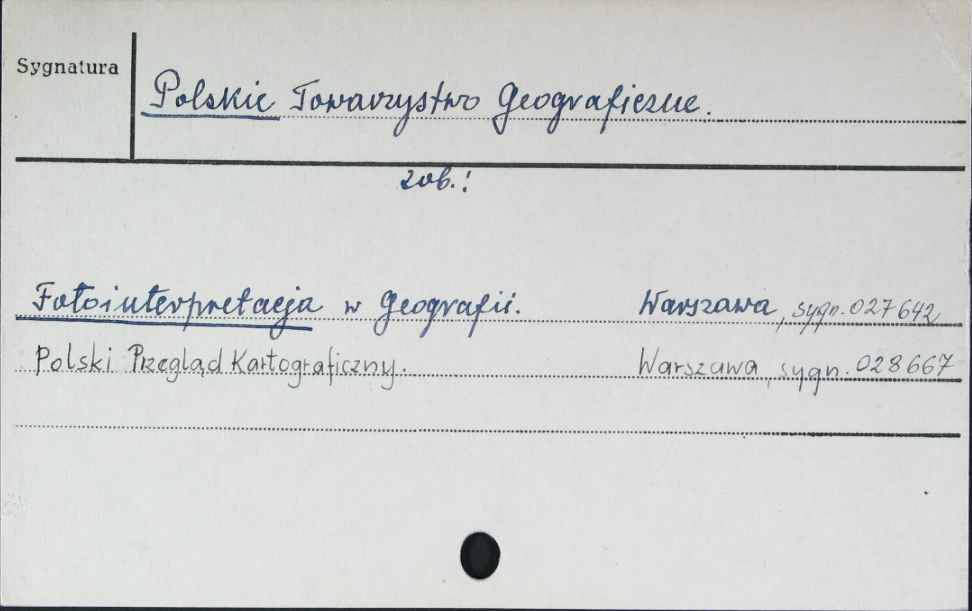 Sygnatura
Polskie Towarzystwo Geograficzne.
zob.:
Fotointerpretacja w Geografii. Warszawa, sygn. 027642
Polski Przegląd Kartograficzny. Warszawa, sygn. 028667